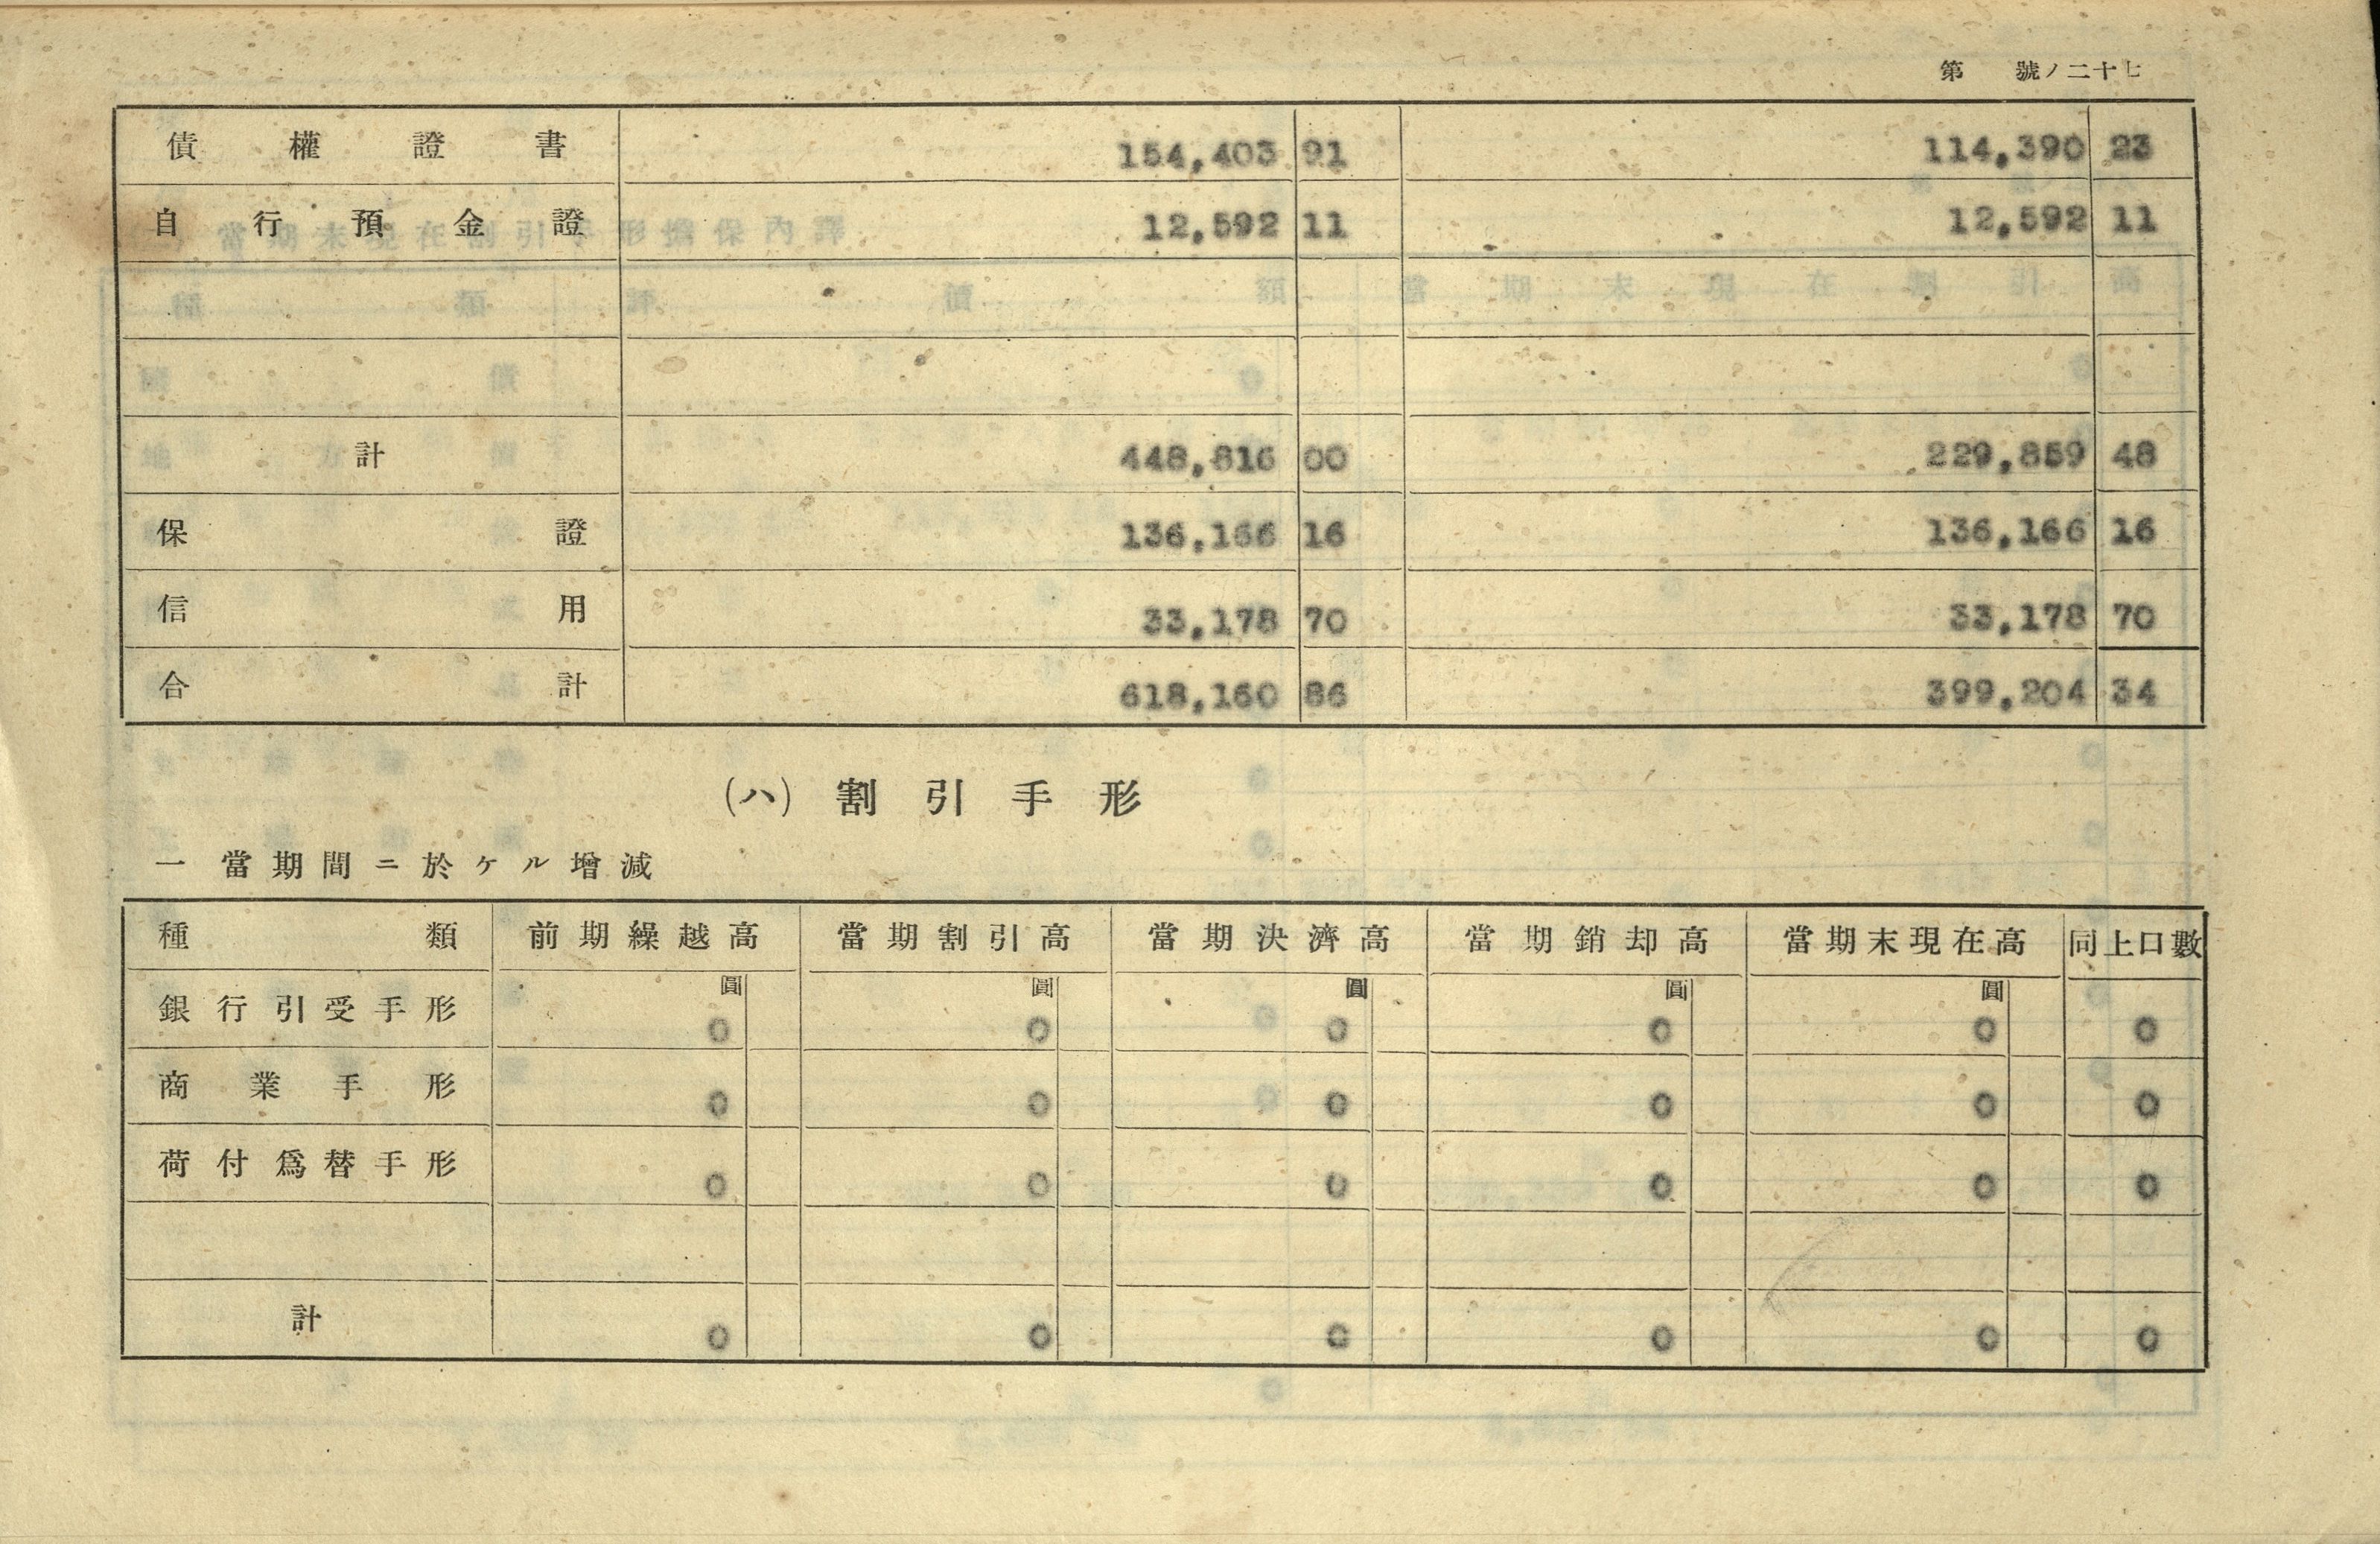 第 號ノ二十七
債權證書 154,403 91 114,390 23
自行預金證 12,592 11 12,592 11
計 448,816 00 229,859 48
保證 136,166 16 136,166 16
信用 33,178 70 33,178 70
合計 618,160 86 399,204 34
(ハ) 割引手形
一 當期間ニ於ケル增減
種類 前期繰越高 當期割引高 當期決濟高 當期銷却高 當期末現在高 同上口數
圓 圓 圓 圓 圓
銀行引受手形 0 0 0 0 0 0
商業手形 0 0 0 0 0 0
荷付爲替手形 0 0 0 0 0 0
計 0 0 0 0 0 0